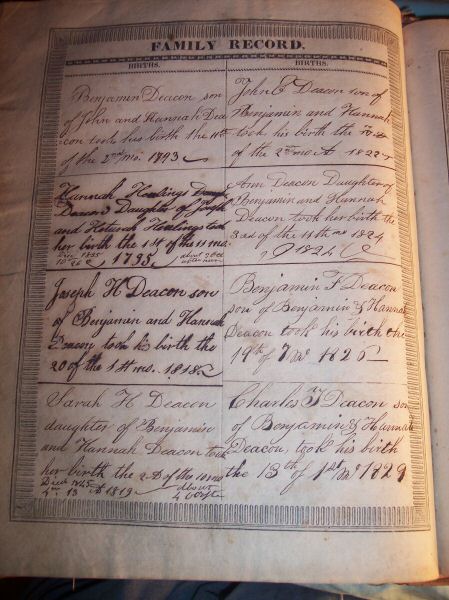 FAMILY RECORD.
BIRTHS.
Benjamin Deacon son
of John and Hannah Dea
con took his birth the 11th
of the 2nd mo. 1793
Hannah Healings
Deacon Daughter of Joseph
and Healings took
her birth the 1st of the 11 mo.
1795
Joseph H Deacon son
of Benjamin and Hannah
Deacon took his birth the
20 of the 1st mo. 1818
Sarah H Deacon
daughter of Benjamin
and Hannah Deacon took
her birth the 2d of the 10 mo
Died 1845 about
4 13 1819 4 o'clk
BIRTHS.
John C Deacon son of
Benjamin and Hannah
took his birth the
of the 2nd mo A 1822
Ann Deacon Daughter of
Benjamin and Hannah
Deacon took her birth the
3d of the 11th mo 1824
1824
Benjamin F Deacon
son of Benjamin & Hannah
Deacon took his birth the
19th of 7 mo 1826
Charles Deacon son
of Benjamin & Hannah
Deacon, took his birth
the 13th of 1st mo 1829